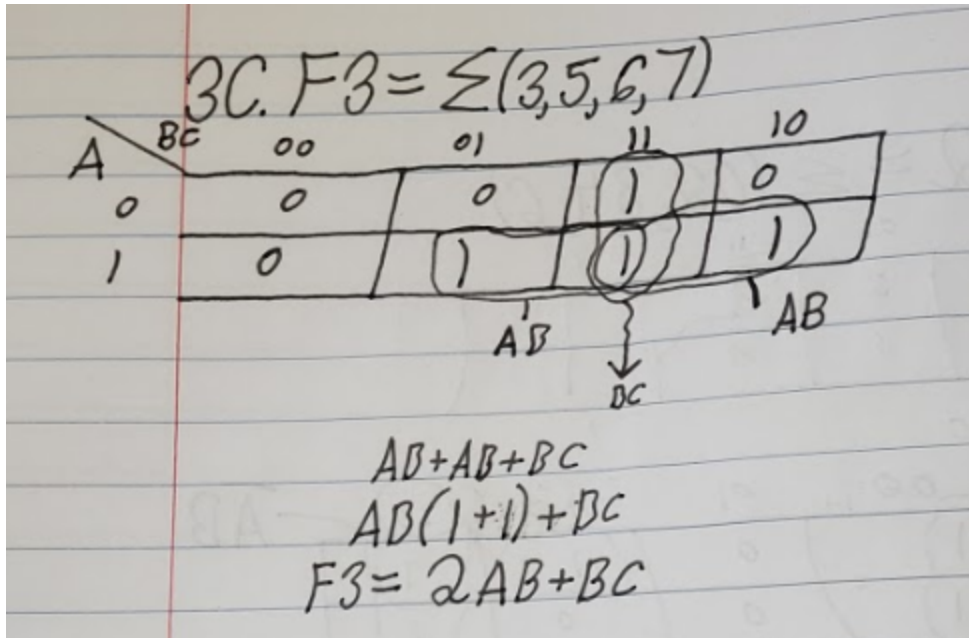 3C. F3 = Σ(3,5,6,7)
A BC 00 01 11 10
0 0 0 1 0
1 0 1 1 1
AB BC AB
AB+AB+BC
AB(1+1)+BC
F3= 2AB+BC